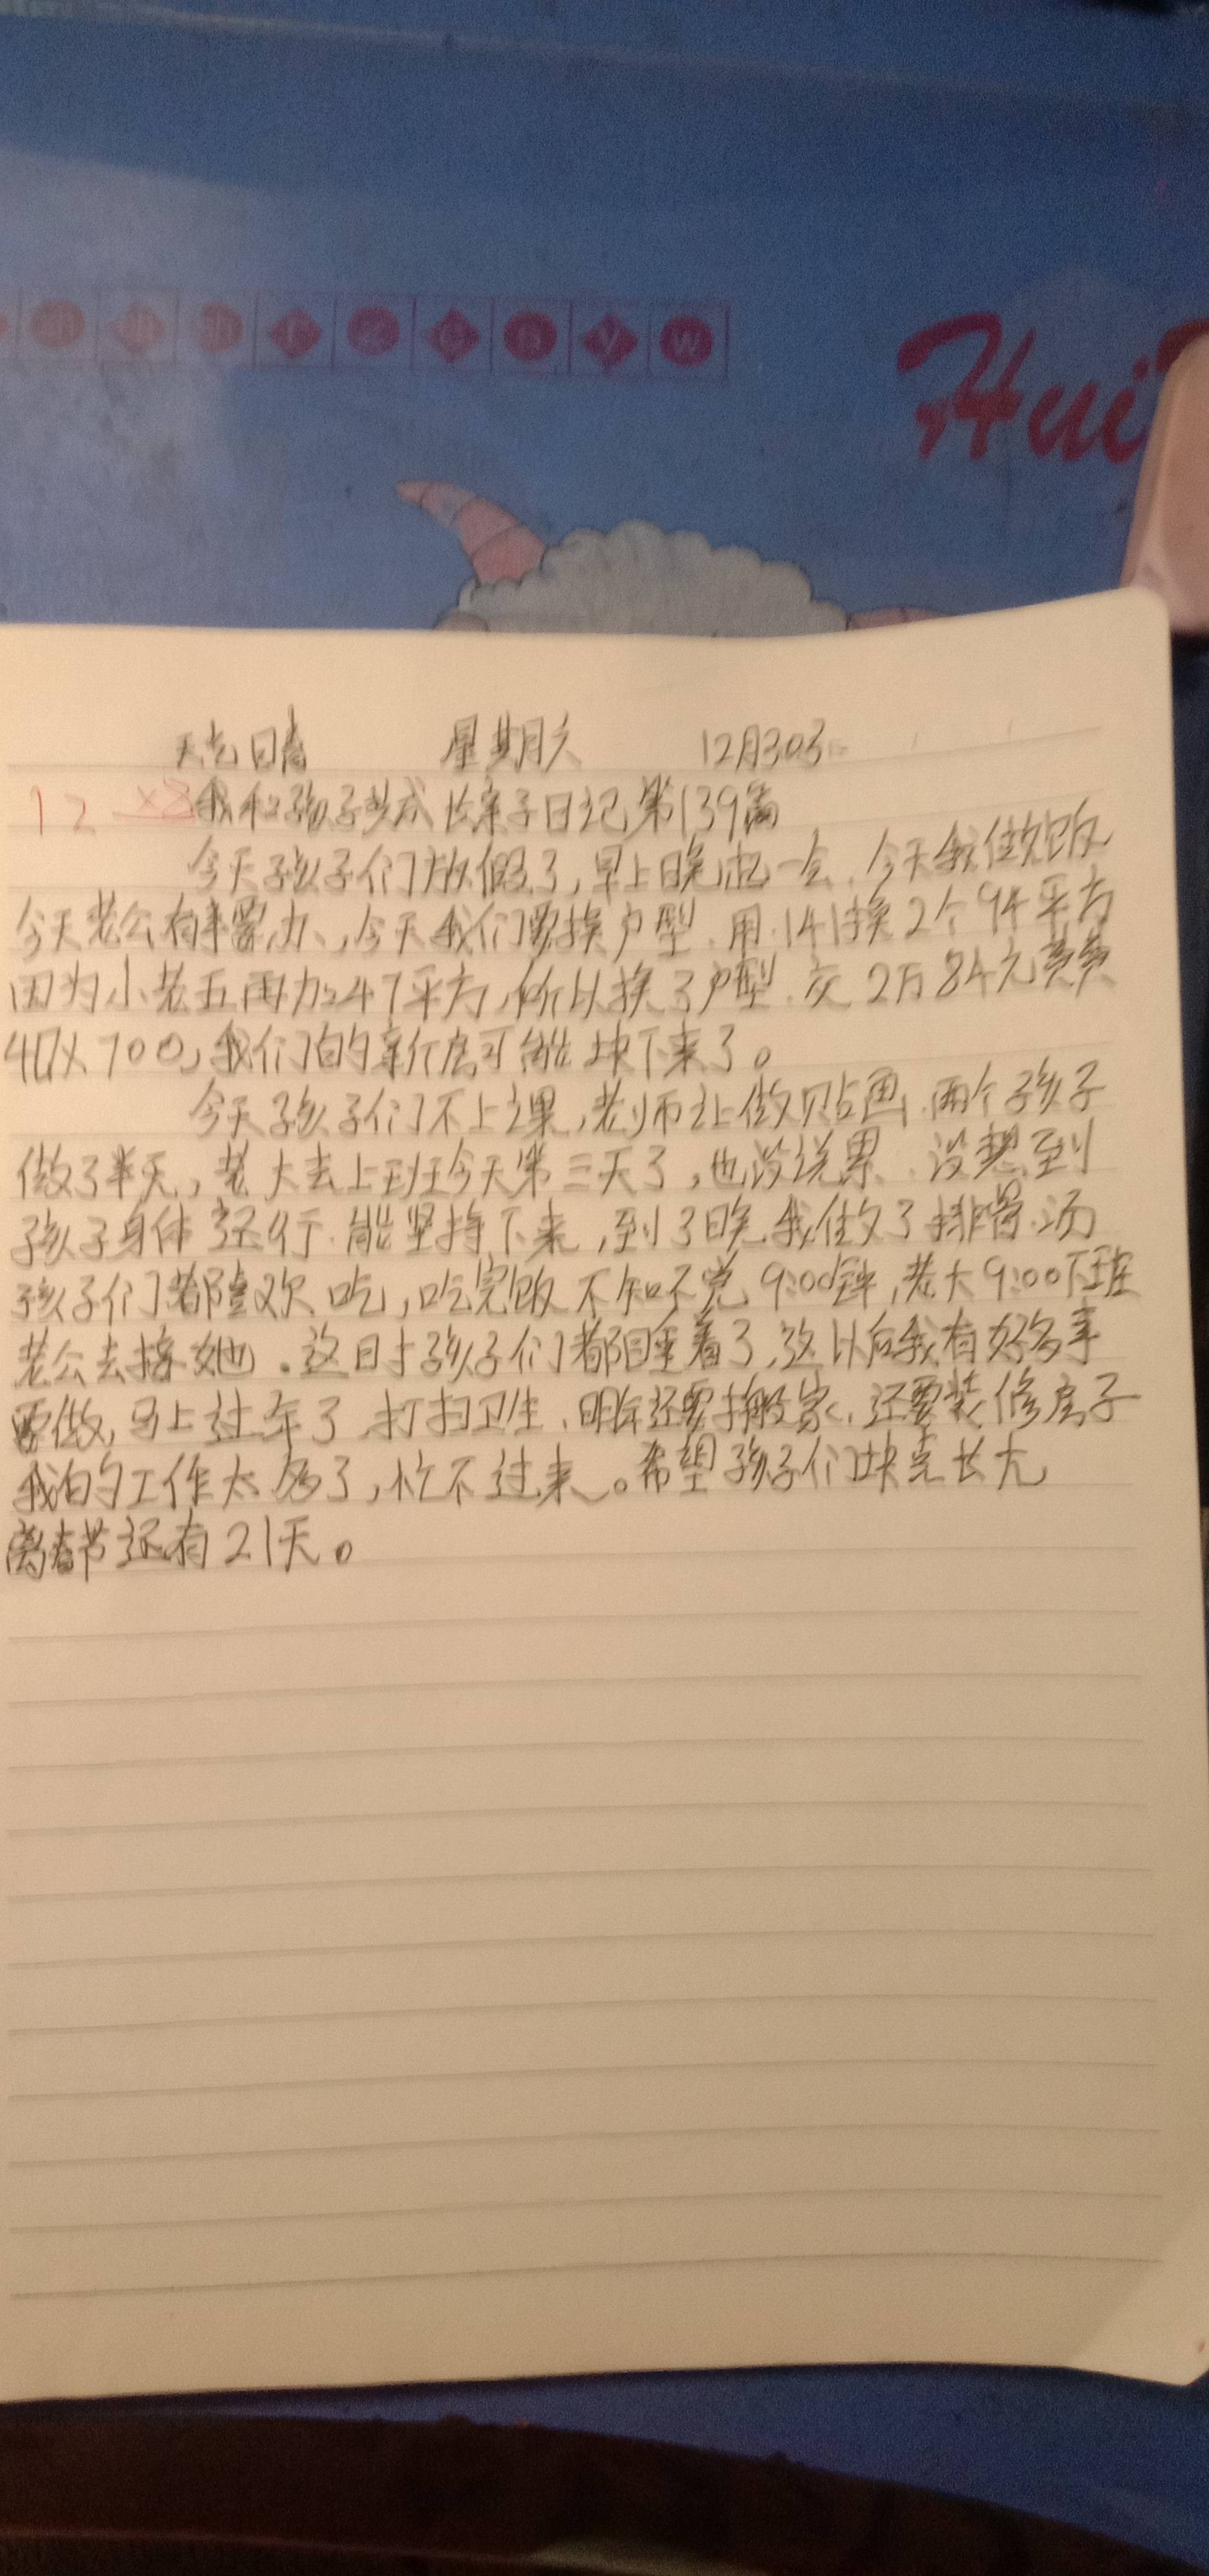 r z c n y w
Hui
天气 日青 星期六 12月30号
12 我和孩子共成长亲子日记第139篇
今天孩子们放假了,早上晚起一会.今天我做饭
今天老公有事要办,今天我们要换户型.用141换2个94平方
因为小老五再加47平方,所以换了户型.交2万84元
47X700,我们的新房可能块下来了。
今天孩子们不上课,老师让做贴画.两个孩子
做了半天,老大去上班今天第三天了,也没说累.没想到
孩子身体还行.能坚持下来,到了晚.我做了排骨汤
孩子们都喜欢吃,吃完饭不知不觉9:00钟,老大9:00下班
老公去接她.这时孩子们都睡着了,这以后我有好多事
要做,马上过年了.打扫卫生、明年还要搬家、还要装修房子
我的工作太多了,忙不过来。希望孩子们块点长大
离春节还有21天。